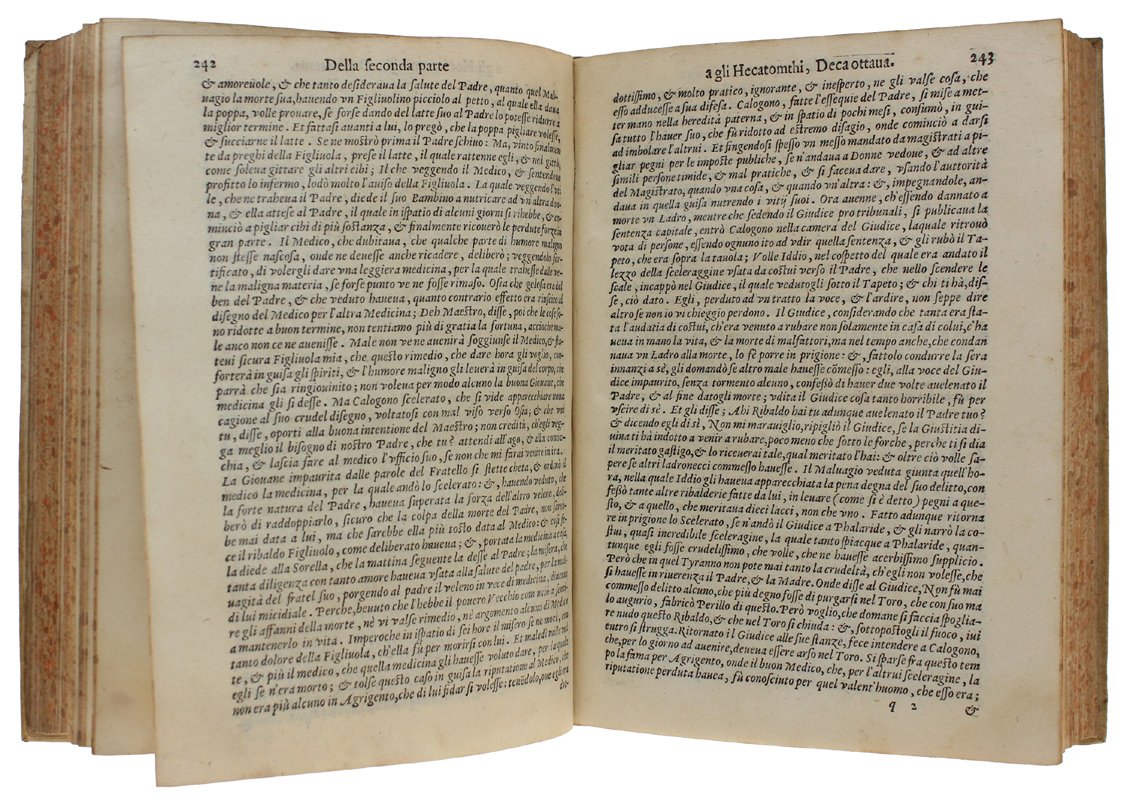 242
Della seconda parte
& amoreuole, & che tanto desideraua la salute del Padre, quanto quel Mal-
uagio la morte sua, hauendo vn Figliuolino picciolo al petto, al quale ella daua
la poppa, volle prouare, se forse dando del latte suo al Padre lo potesse ridurre a
miglior termine. Et fattasi auanti a lui, lo pregò, che la poppa pigliare volesse,
& succiarne il latte. Se ne mostrò prima il Padre schiuo: Ma, vinto finalmen
te da preghi della Figliuola, prese il latte, il quale rattenne egli, & nel gittò,
come soleua gittare gli altri cibi; Il che veggendo il Medico, & sentendone
profitto lo infermo, lodò molto l'auiso della Figliuola. La quale veggendo l'vti
le, che ne traheua il Padre, diede il suo Bambino a nutricare ad vn'altra don-
na, & ella attese al Padre, il quale in ispatio di alcuni giorni si rihebbe, & co-
minciò a pigliar cibi di più sostanza, & finalmente ricouerò le perdute forze in
gran parte. Il Medico, che dubitaua, che qualche parte di humore maligno
non stesse nascosa, onde ne deuesse anche ricadere, deliberò; veggendolo for-
tificato, di volergli dare vna leggiera medicina, per la quale trahesse dalle ve-
ne la maligna materia, se forse punto ve ne fosse rimaso. Osia che gelosa era del
ben del Padre, & che veduto haueua, quanto contrario effetto era riuscito al
disegno del Medico per l'altra Medicina; Deh Maestro, disse, poi che le cose so-
no ridotte a buon termine, non tentiamo più di gratia la fortuna, accioche ma-
le anco non ce ne auenisse. Male non ve ne auenirà soggiunse il Medico, & sta-
teui sicura Figliuola mia, che questo rimedio, che dare hora gli voglio, con-
forterà in guisa gli spiriti, & l'humore maligno gli leuerà in guisa del corpo, che
parrà che sia ringiouinito; non voleua per modo alcuno la buona Giouane, che
medicina gli si desse. Ma Calogono scelerato, che si vide apparecchiare noua
cagione al suo crudel disegno, voltatosi con mal viso verso Osia; & che voi
tu, disse, oporti alla buona intentione del Maestro; non credi tu, ch'egli veg-
ga meglio il bisogno di nostro Padre, che tu? attendi all'ago, & alla conoc-
chia, & lascia fare al medico l'vfficio suo, se non che mi farai venire in ira.
La Giouane impaurita dalle parole del Fratello si stette cheta, & ordinò il
medico la medicina, per la quale andò lo scelerato: &, hauendo veduto, che
la forte natura del Padre, haueua superata la forza dell'altro veleno, deli-
berò di raddoppiarlo, sicuro che la colpa della morte del Padre, non sareb-
be mai data a lui, ma che sarebbe ella più tosto data al Medico: & così fe-
ce il ribaldo Figliuolo, come deliberato haueua; &, portata la medicina a casa,
la diede alla Sorella, che la mattina seguente la desse al Padre; la misera, che
tanta diligenza con tanto amore haueua vsata alla salute del padre, per la mal-
uagità del fratel suo, porgendo al padre il veleno in vece di medicina, diuenne
di lui micidiale. Perche, beuuto che l'hebbe il pouero Vecchio cominciò a senti-
re gli affanni della morte, nè vi valse rimedio, nè argomento alcuno di Medico
a mantenerlo in vita. Imperoche in ispatio di sei hore il misero se ne morì, con
tanto dolore della Figliuola, ch'ella fù per morirsi con lui. Et maledì mille vol-
te, & più il medico, che quella medicina gli hauesse voluto dare, per la quale
egli se n'era morto; & tolse questo caso in guisa la riputatione al Medico, che
non era più alcuno in Agrigento, che di lui fidar si volesse: tenēdolo, oue egli era
dot-
a gli Hecatomthi, Deca ottaua.
243
dottissimo, & molto pratico, ignorante, & inesperto, ne gli valse cosa, che
esso adducesse a sua difesa. Calogono, fatte l'essequie del Padre, si mise a met-
ter mano nella heredità paterna, & in spatio di pochi mesi, consumò, in gui-
sa tutto l'hauer suo, che fù ridotto ad estremo disagio, onde cominciò a darsi
ad imbolare l'altrui. Et fingendosi spesso vn messo mandato da magistrati a pi-
gliar pegni per le imposte publiche, se n'andaua a Donne vedoue, & ad altre
simili persone timide, & mal pratiche, & si faceua dare, vsando l'auttorità
del Magistrato, quando vna cosa, & quando vn'altra: &, impegnandole, an-
daua in quella guisa nutrendo i vitij suoi. Ora auenne, ch'essendo dannato a
morte vn Ladro, mentre che sedendo il Giudice pro tribunali, si publicaua la
sentenza capitale, entrò Calogono nella camera del Giudice, laquale ritrouò
vota di persone, essendo ognuno ito ad vdir quella sentenza, & gli rubò il Ta-
peto, che era sopra la tauola; Volle Iddio, nel cospetto del quale era andato il
lezzo della sceleraggine vsata da costui verso il Padre, che nello scendere le
scale, incappò nel Giudice, il quale vedutogli sotto il Tapeto; & chi ti hà, dis-
se, ciò dato. Egli, perduto ad vn tratto la voce, & l'ardire, non seppe dire
altro se non io vi chieggio perdono. Il Giudice, considerando che tanta era sta-
ta l'audatia di costui, ch'era venuto a rubare non solamente in casa di colui, c'ha
ueua in mano la vita, & la morte di malfattori, ma nel tempo anche, che condan
naua vn Ladro alla morte, lo fè porre in prigione: &, fattolo condurre la sera
innanzi a sè, gli domandò se altro male hauesse cōmesso: egli, alla voce del Giu-
dice impaurito, senza tormento alcuno, confessò di hauer due volte auelenato il
Padre, & al fine datogli morte; vdita il Giudice cosa tanto horribile, fù per
vscire di sè. Et gli disse; Ahi Ribaldo hai tu adunque auelenato il Padre tuo?
& dicendo egli di sì, Non mi marauiglio, ripigliò il Giudice, se la Giustitia di-
uina ti hà indotto a venir a rubare, poco meno che sotto le forche, perche ti si dia
il meritato gastigo, & lo riceuerai tale, qual meritato l'hai: & oltre ciò volle sa-
pere se altri ladronecci commesso hauesse. Il Maluagio veduta giunta quell'ho-
ra, nella quale Iddio gli haueua apparecchiata la pena degna del suo delitto, con
fessò tante altre ribalderie fatte da lui, in leuare (come si è detto) pegni a que-
sto, & a quello, che meritaua dieci lacci, non che vno. Fatto adunque ritorna
re in prigione lo Scelerato, se n'andò il Giudice a Phalaride, & gli narrò la co-
stui, quasi incredibile sceleragine, la quale tanto spiacque a Phalaride, quan-
tunque egli fosse crudelissimo, che volle, che ne hauesse acerbissimo supplicio.
Però che in quel Tyranno non pote mai tanto la crudeltà, ch'egli non volesse, che
si hauesse in riuerenza il Padre, & la Madre. Onde disse al Giudice, Non fù mai
commesso delitto alcuno, che più degno fosse di purgarsi nel Toro, che con suo ma
lo augurio, fabricò Perillo di questo. Però voglio, che domane si faccia spoglia-
re nudo questo Ribaldo, & che nel Toro si chiuda: &, sottopostogli il fuoco, iui
entro si strugga. Ritornato il Giudice alle sue stanze, fece intendere a Calogono,
che, per lo giorno ad auenire, deueua essere arso nel Toro. Si sparse frà questo tem
po la fama per Agrigento, onde il buon Medico, che, per l'altrui sceleragine, la
riputatione perduta hauea, fù conosciuto per quel valent'huomo, che esso era;
q 2
&